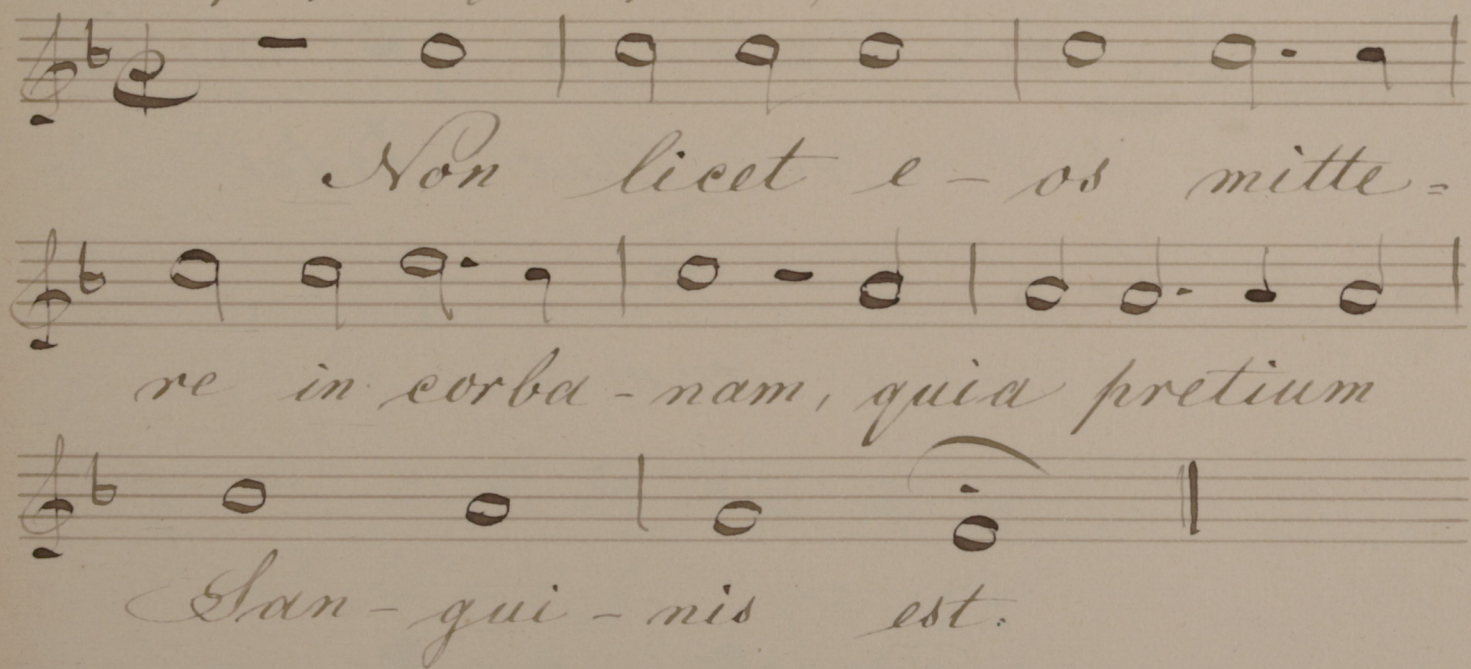 Non licet e - os mitte =
re in corba - nam, quia pretium
San - gui - nis est.